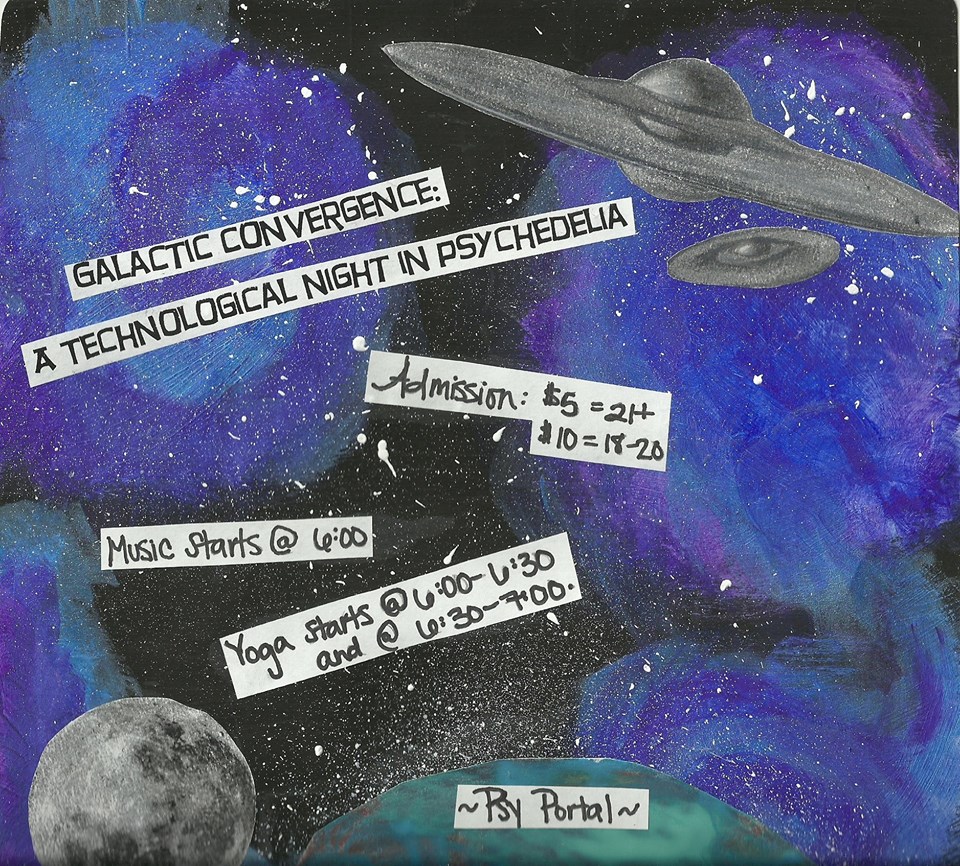 GALACTIC CONVERGENCE:
A TECHNOLOGICAL NIGHT IN PSYCHEDELIA
Admission: $5 = 21+
$10 = 18-20
Music Starts @ 6:00
Yoga starts @ 6:00-6:30
and @ 6:30-7:00.
~Psy Portal~